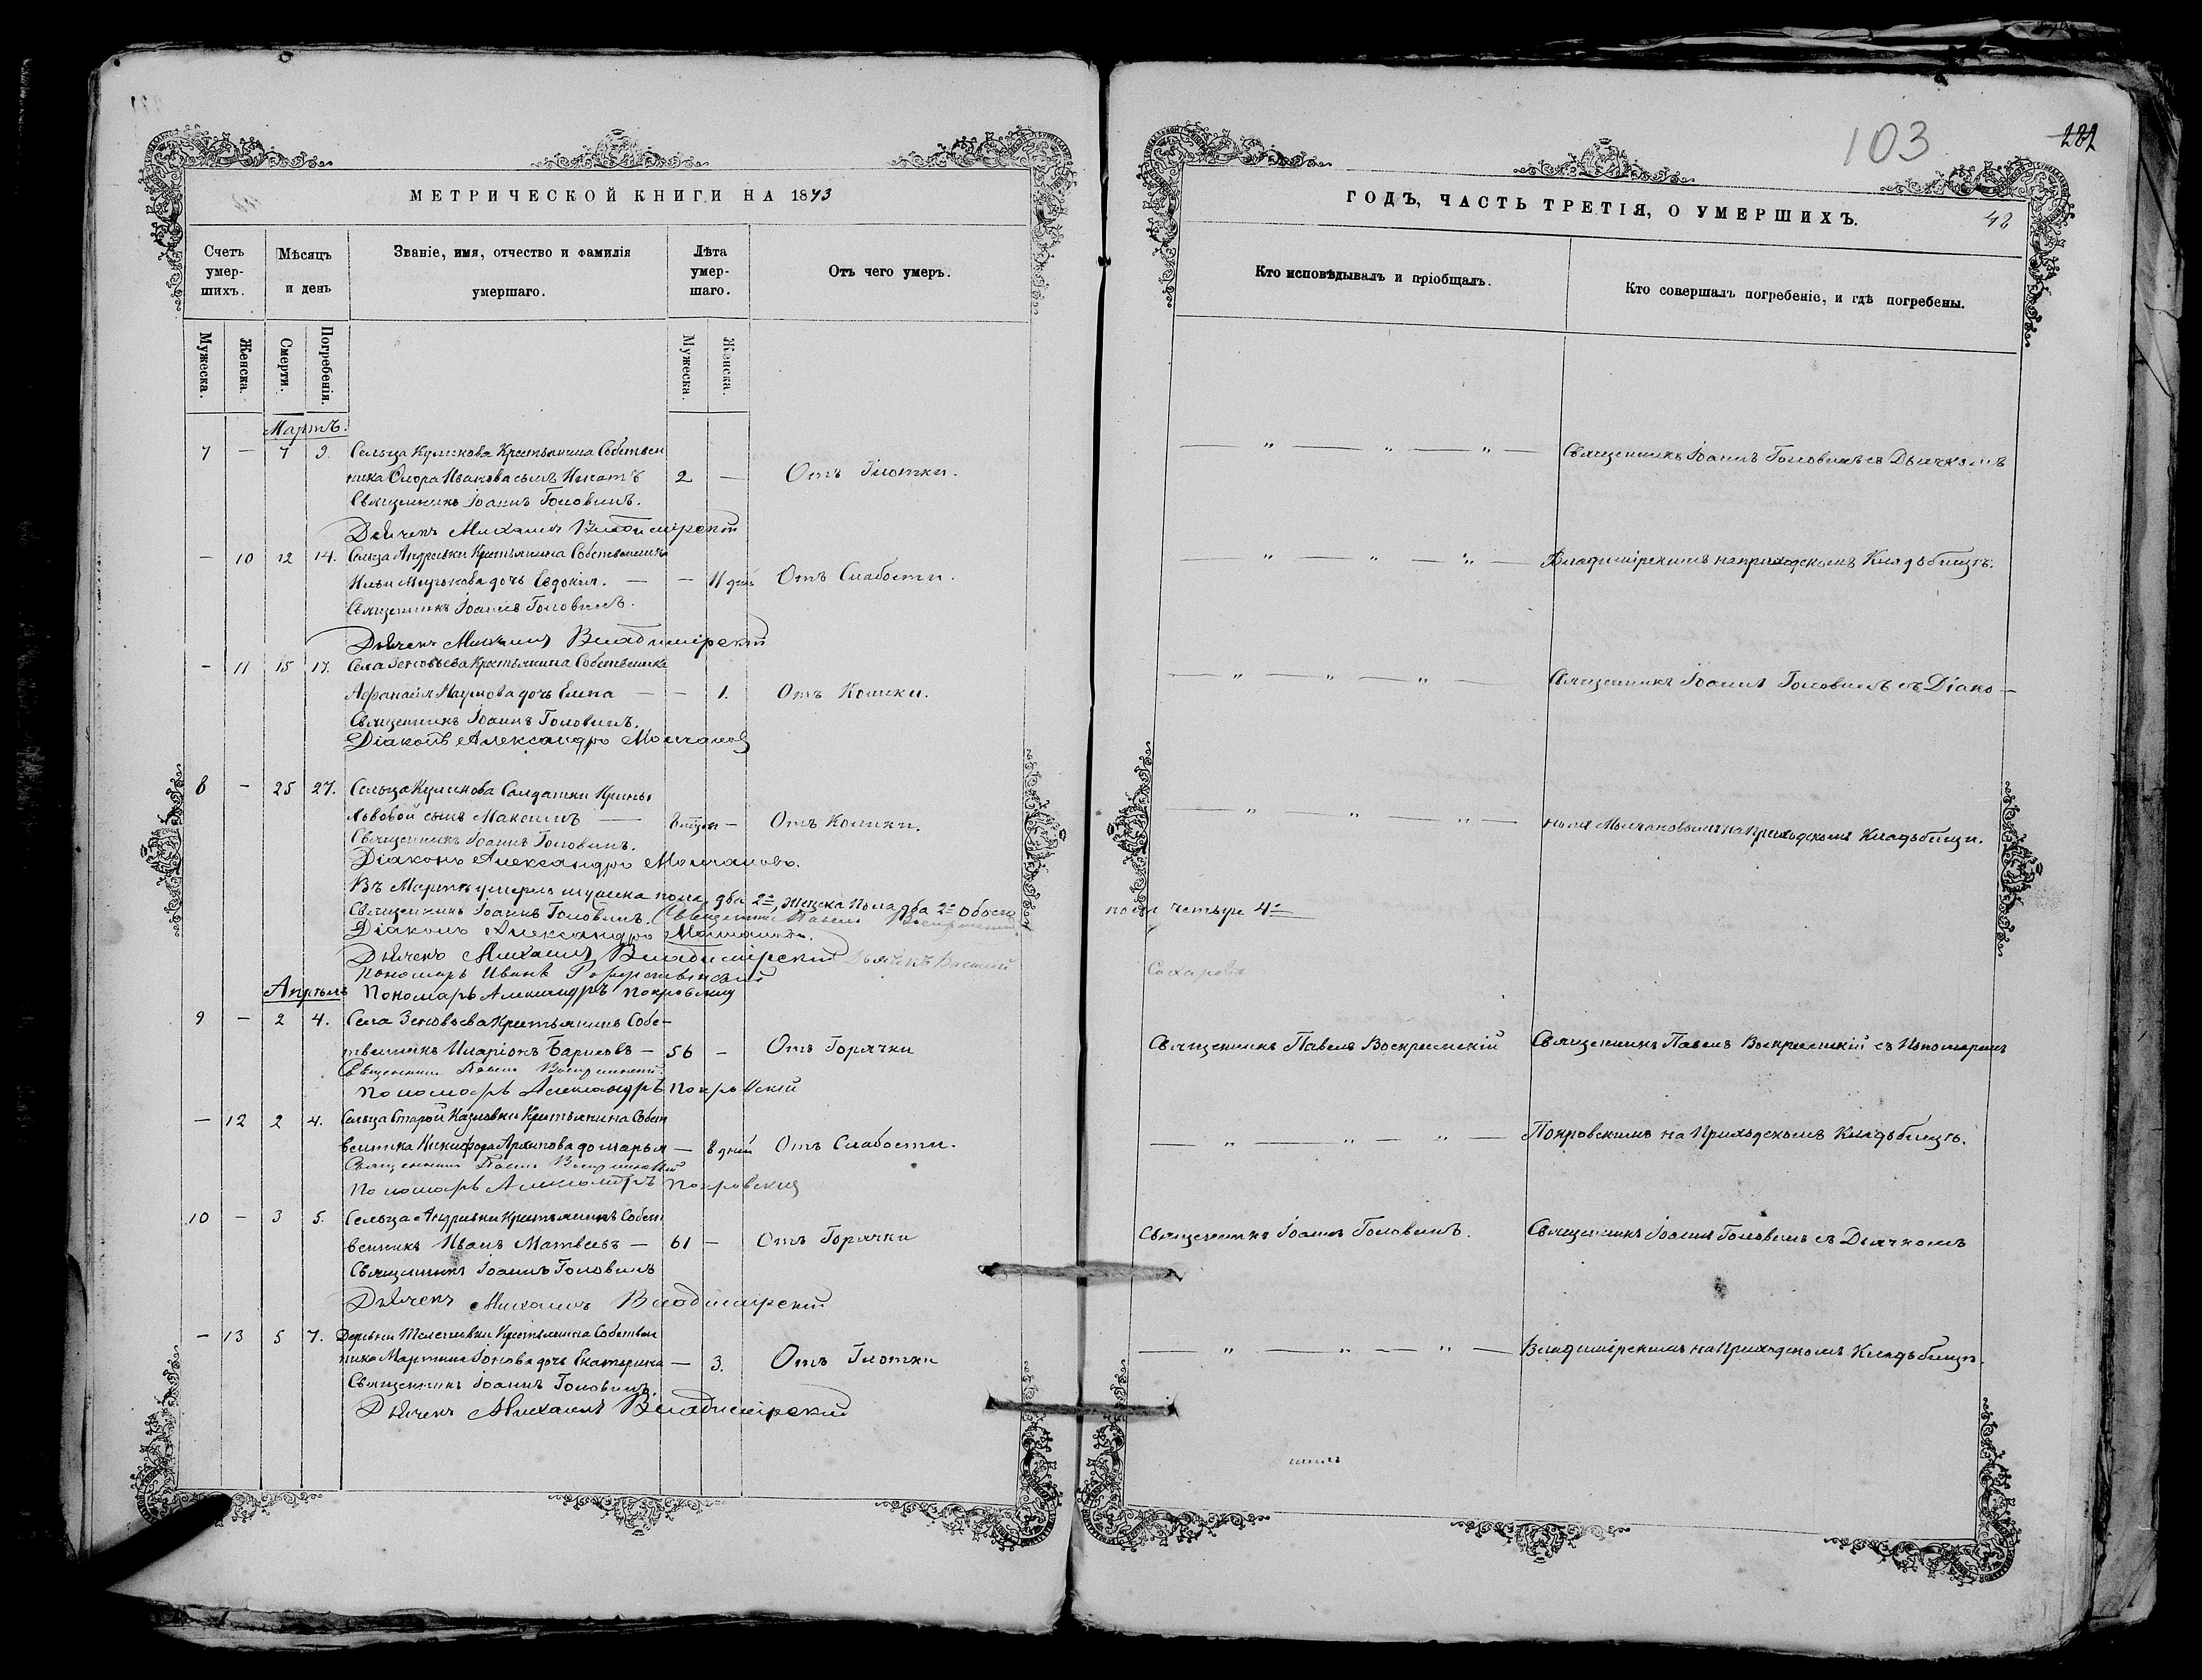 103
282
МЕТРИЧЕСКОЙ КНИГИ НА 1873
Счетъ умер-шихъ.
Мѣсяцъ и день
Званіе, имя, отчество и фамилія умершаго.
Лѣта умер-шаго.
Отъ чего умеръ.
Мужеска.
Женска.
Смерти.
Погребенія.
Мужеска.
Женска.
Мартъ.
7 — 7 9. Сельца Куликова Крестьянина Собствен
ника Ѳиора Иванова сынъ Игнатъ 2 — Отъ Глотки.
Священникъ Іоаннъ Головинъ.
Дьячекъ Михаилъ Владимірскій
— 10 12 14. Сельца Андреевки Крестьянина Собственника
дочь Евдокія. — — 11 дней Отъ Слабости.
Священникъ Іоаннъ Головинъ.
Дьячекъ Михаилъ Владимірскій
— 11 15 17. Села Зеновьева Крестьянина Собственника
Афанасія Наумова дочь Елена — — 1. Отъ Колики.
Священникъ Іоаннъ Головинъ.
Діаконъ Александръ Молчановъ
8 — 25 27. Сельца Куликова Солдатки
Львовой сынъ Максимъ — — Отъ Колики.
Священникъ Іоаннъ Головинъ.
Діаконъ Александръ Молчановъ.
Въ Мартѣ умерло мужеска пола два 2=, женска пола два 2= обоего
Священникъ Іоаннъ Головинъ. Священникъ Павелъ Воскресенскій
Діаконъ Александръ Молчановъ.
Дьячекъ Михаилъ Владимірскій Дьячекъ Василій
Пономарь Иванъ
Апрѣль Пономарь Александръ Покровскій
9 — 2 4. Села Зеновьева Крестьянинъ Собс-
твенникъ Иларіонъ Борисовъ — 56 — Отъ Горячки
Священникъ Павелъ Воскресенскій
Пономарь Александръ Покровскій
— 12 2 4. Сельца Старой Крестьянина Собст
венника Никифора Архипова дочь Марья — 8 дней Отъ Слабости.
Священникъ Павелъ Воскресенскій
Пономарь Александръ Покровскій
10 — 3 5. Сельца Андреевки Крестьянинъ Собст
венникъ Иванъ Матвеевъ — 61 — Отъ Горячки
Священникъ Іоаннъ Головинъ
Дьячекъ Михаилъ Владимірскій
— 13 5 7. Деревни Крестьянина Собствен
ника Мартина Іонова дочь Екатерина — 3. Отъ Глотки
Священникъ Іоаннъ Головинъ.
Дьячекъ Михаилъ Владимірскій
ГОДЪ, ЧАСТЬ ТРЕТІЯ, О УМЕРШИХЪ.
48
Кто исповѣдывалъ и пріобщалъ.
Кто совершалъ погребеніе, и гдѣ погребены.
— „ — „ — „ — Священникъ Іоаннъ Головинъ съ Дьячкомъ
— „ — „ — „ — Владимірскимъ на приходскомъ Кладьбищѣ.
— „ — „ — „ — Священникъ Іоаннъ Головинъ съ Діако—
— „ — „ — „ — номъ Молчановымъ на приходскомъ Кладьбищи.
пола четыре 4=
Сахаровъ
Священникъ Павелъ Воскресенскій Священникъ Павелъ Воскресенскій съ Пономаремъ
— „ — „ — „ — Покровскимъ на Приходскомъ Кладьбищѣ.
Священникъ Іоаннъ Головинъ. Священникъ Іоаннъ Головинъ съ Дьячкомъ
— „ — „ — „ — Владимірскимъ на Приходскомъ Кладьбищѣ.